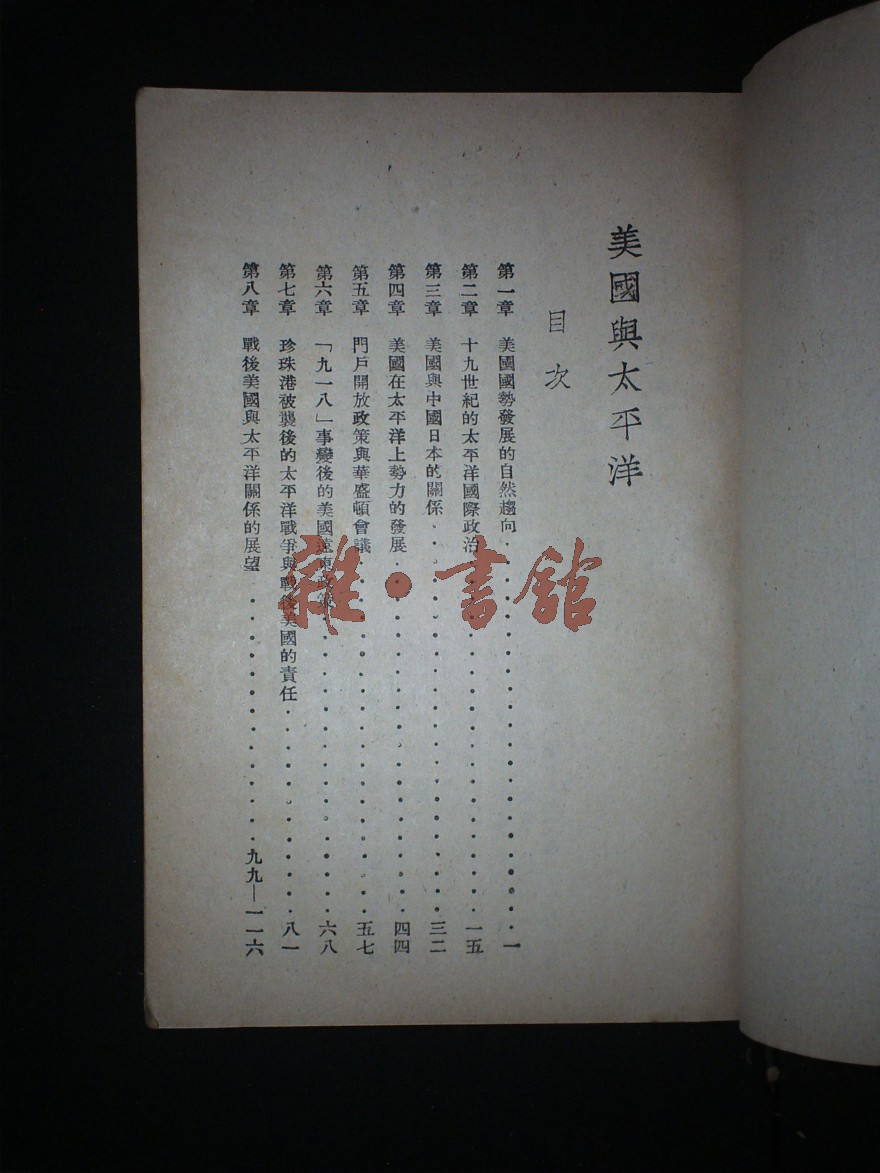 美國與太平洋
目次
第一章 美國國勢發展的自然趨向 一
第二章 十九世紀的太平洋國際政治 一五
第三章 美國與中國日本的關係 三二
第四章 美國在太平洋上勢力的發展 四四
第五章 門戶開放政策與華盛頓會議 五七
第六章 「九一八」事變後的美國遠東政策 六八
第七章 珍珠港被襲後的太平洋戰爭與戰後美國的責任 八一
第八章 戰後美國與太平洋關係的展望 九九—一一六
雜·書館